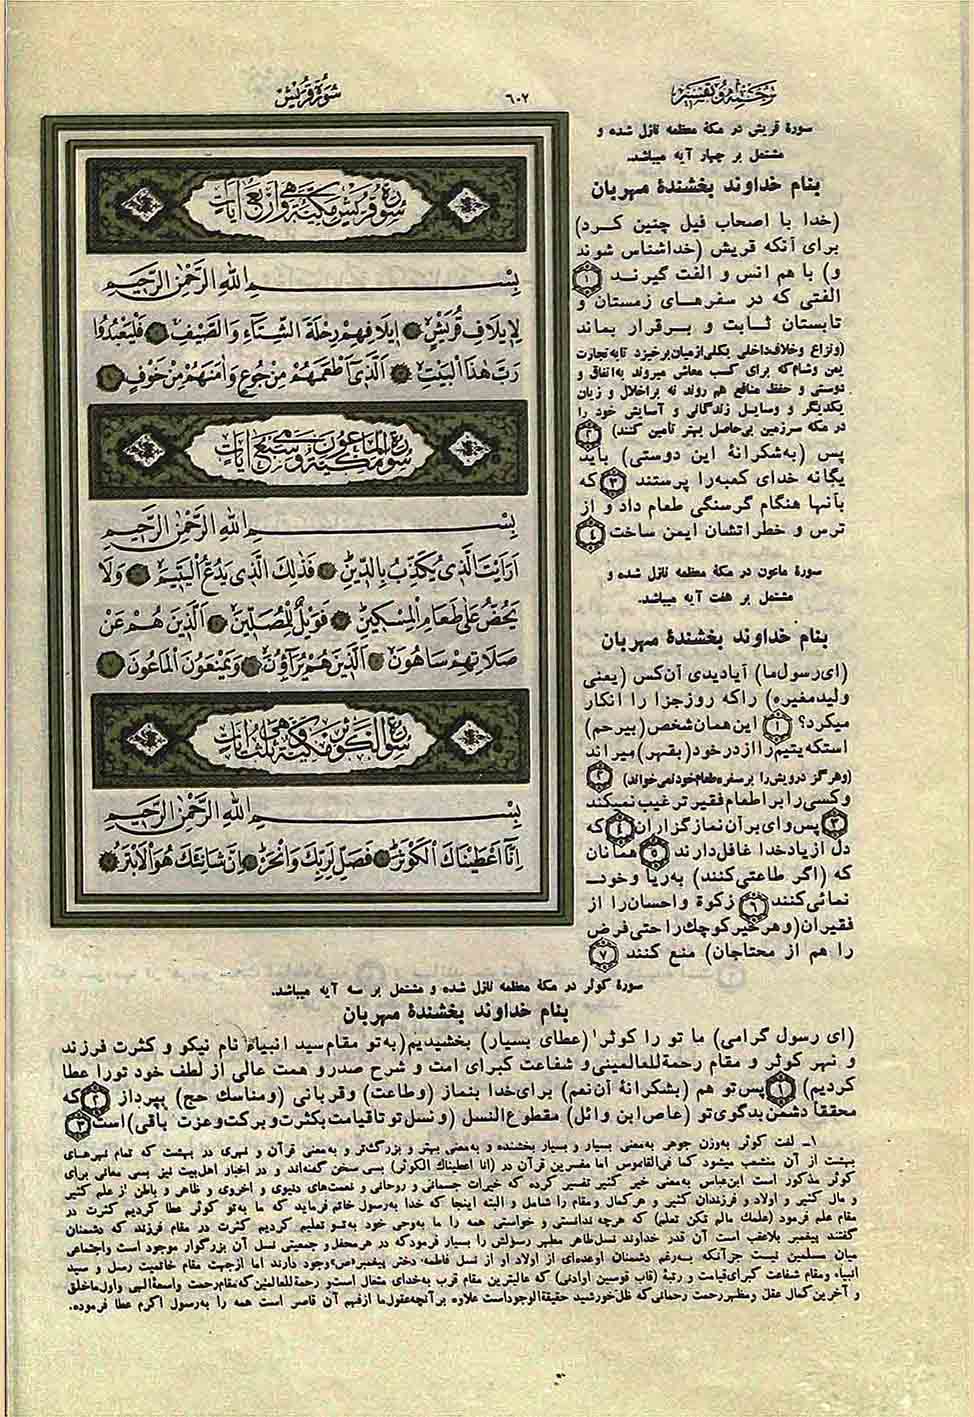 ترجمه و تفسیر
۶۰۲
سورة قریش
سُورَةُ قُرَيْشٍ مَكِّيَّةٌ وَهِيَ أَرْبَعُ آيَاتٍ
بِسْمِ اللهِ الرَّحْمٰنِ الرَّحِيمِ
لِإِيلَافِ قُرَيْشٍ ۱ إِيلَافِهِمْ رِحْلَةَ الشِّتَاءِ وَالصَّيْفِ ۲ فَلْيَعْبُدُوا
رَبَّ هٰذَا الْبَيْتِ ۳ الَّذِي أَطْعَمَهُمْ مِنْ جُوعٍ وَآمَنَهُمْ مِنْ خَوْفٍ ۴
سُورَةُ الْمَاعُونِ مَكِّيَّةٌ وَهِيَ سَبْعُ آيَاتٍ
بِسْمِ اللهِ الرَّحْمٰنِ الرَّحِيمِ
أَرَأَيْتَ الَّذِي يُكَذِّبُ بِالدِّينِ ۱ فَذٰلِكَ الَّذِي يَدُعُّ الْيَتِيمَ ۲ وَلَا
يَحُضُّ عَلَىٰ طَعَامِ الْمِسْكِينِ ۳ فَوَيْلٌ لِلْمُصَلِّينَ ۴ الَّذِينَ هُمْ عَنْ
صَلَاتِهِمْ سَاهُونَ ۵ الَّذِينَ هُمْ يُرَاؤُنَ ۶ وَيَمْنَعُونَ الْمَاعُونَ ۷
سُورَةُ الْكَوْثَرِ مَكِّيَّةٌ وَهِيَ ثَلٰثُ آيَاتٍ
بِسْمِ اللهِ الرَّحْمٰنِ الرَّحِيمِ
إِنَّا أَعْطَيْنَاكَ الْكَوْثَرَ ۱ فَصَلِّ لِرَبِّكَ وَانْحَرْ ۲ إِنَّ شَانِئَكَ هُوَ الْأَبْتَرُ ۳
سورۀ قریش در مکۀ معظمه نازل شده و
مشتمل بر چهار آیه میباشد.
بنام خداوند بخشندۀ مهربان
(خدا با اصحاب فیل چنین کرد)
برای آنکه قریش (خداشناس شوند
و) با هم انس و الفت گیرند ۱
الفتی که در سفرهای زمستان و
تابستان ثابت و برقرار بماند
(ونزاع وخلاف داخلی بکلی ازمیان برخیزد تابه تجارت
یمن وشام که برای کسب معاش میروند به اتفاق و
دوستی و حفظ منافع هم روند نه براخلال و زیان
یکدیگر و وسایل زندگانی و آسایش خود را
در مکه سرزمین بی‌حاصل بهتر تامین کنند) ۲
پس (به شکرانۀ این دوستی) باید
یگانه خدای کعبه را پرستند ۳ که
بآنها هنگام گرسنگی طعام داد و از
ترس و خطراتشان ایمن ساخت ۴
سورۀ ماعون در مکۀ معظمه نازل شده و
مشتمل بر هفت آیه میباشد.
بنام خداوند بخشندۀ مهربان
(ای رسول ما) آیادیدی آن کس (یعنی
ولید مغیره) راکه روز جزا را انکار
میکرد؟ ۱ این همان شخص (بیرحم)
استکه یتیم را ازدر خود (بقهر) میراند
(وهرگز درویش را بر سفره طعام خود نمی‌خواند) ۲
وکسی را بر اطعام فقیر ترغیب نمیکند
۳ پس وای بر آن نماز گزاران ۴ که
دل از یاد خدا غافل دارند ۵ همانان
که (اگر طاعتی کنند) به ریا وخود
نمائی کنند ۶ و زکوة واحسان را از
فقیران (و هر خیر کوچك را حتی قرض
را هم از محتاجان) منع کنند ۷
سورۀ کوثر در مکۀ معظمه نازل شده و مشتمل بر سه آیه میباشد.
بنام خداوند بخشندۀ مهربان
(ای رسول گرامی) ما تو را کوثر۱ (عطای بسیار) بخشیدیم (به تو مقام سید انبیاء نام نیکو و کثرت فرزند
و نهر کوثر و مقام رحمة للعالمینی و شفاعت کبرای امت و شرح صدر و همت عالی از لطف خود تو را عطا
کردیم) ۱ پس تو هم (بشکرانۀ آن نعم) برای خدا بنماز (وطاعت) وقربانی (ومناسك حج) بپرداز ۲ که
محققاً دشمن بدگوی تو (عاص ابن وائل) مقطوع النسل (و نسل تو تا قیامت بکثرت و برکت و عزت باقی) است ۳
۱ـ لغت کوثر به‌وزن جوهر به‌معنی بسیار و بسیار بخشنده و به‌معنی بهتر و بزرگ‌تر و به‌معنی قرآن و نهری در بهشت که تمام نهرهای
بهشت از آن منشعب میشود کما فی‌القاموس اما مفسرین قرآن در (انا اعطیناك الکوثر) بسی سخن گفته‌اند و در اخبار اهل‌بیت نیز بسی معانی برای
کوثر مذکور است ابن‌عباس به‌معنی خیر کثیر تفسیر کرده که خیرات جسمانی و روحانی و نعمت‌های دنیوی و اخروی و ظاهر و باطن از علم کثیر
و مال کثیر و اولاد و فرزندان کثیر و هرکمال ومقام را شامل و البته اینجا که خدا به‌رسول خاتم فرماید که ما به‌تو کوثر عطا کردیم کثرت در
مقام علم فرمود (علمك مالم تکن تعلم) که هرچه ندانستی و خواستی همه را ما به‌وحی خود به‌تو تعلیم کردیم کثرت در مقام فرزند که دشمنان
گفتند پیغمبر بلاعقب است آن قدر خداوند نسل طاهر مطهر رسولش را بسیار فرمود که در هر محفل و جمعیتی نسل آن بزرگوار موجود است واجتماعی
میان مسلمین نیست جز آنکه به‌رغم دشمنان اوعده‌ای از اولاد او از نسل فاطمه، دختر پیغمبر«ص» وجود دارند اما ازجهت مقام خاتمیت رسل و سید
انبیاء ومقام شفاعت کبرای قیامت و رتبۀ (قاب قوسین اوادنی) که عالیترین مقام قرب به‌خدای متعال است و رحمة للعالمین که مقام رحمت واسعۀ الهی واول ماخلق
و آخرین کمال عقل ومظهر رحمت رحمانی که ظل خورشید حقیقة الوجود است علاوه برآنچه عقول ما ازفهم آن قاصر است همه را به‌رسول اکرم عطا فرموده.